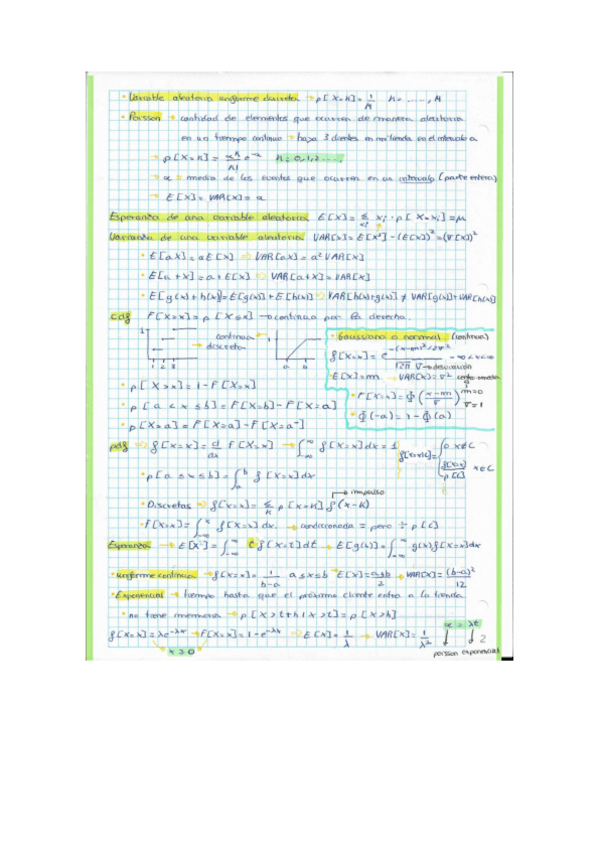 • Variable aleatoria uniforme discreta → p[X=k] = 1/M k = ....., M
• Poisson → cantidad de elementos que ocurren de manera aleatoria
en un tiempo continuo → haya 3 clientes en mi tienda en el intervalo a
→ p[X=k] = α^k/k! e^-α k=0,1,2....
→ α = media de los eventos que ocurren en un intervalo (parte entera)
→ E[X] = VAR[X] = α
Esperanza de una variable aleatoria E[X] = Σ xi · p[X=xi] = μ
Varianza de una variable aleatoria VAR[X] = E[X²] - (E[X])² = (∇[X])²
• E[aX] = aE[X] ⇒ VAR[aX] = a² VAR[X]
• E[a+X] = a + E[X] ⇒ VAR[a+X] = VAR[X]
• E[g(x) + h(x)] = E[g(x)] + E[h(x)] ⇒ VAR[h(x)+g(x)] ≠ VAR[g(x)]+VAR[h(x)]
cdf F[X=x] = p[X≤x] → continua por la derecha.
1 1 2 3
continua →
← discreta
1 a b
• Gaussiana o normal (continua)
f[X=x] = e^-(x-m)²/2∇² / √2π ∇ → desviación -∞<x<∞
E[X] = m VAR[X] = ∇²
• F[X=x] = Φ(x-m/∇) m=0 ∇=1
• Φ(-a) = 1 - Φ(a)
• p[X>x] = 1 - F[X=x]
• p[a<x≤b] = F[X=b] - F[X=a]
• p[X=a] = F[X=a] - F[X=a⁻]
pdf ⇒ f[X=x] = d/dx F[X=x] → ∫-∞^∞ f[X=x] dx = 1
f[X=x|C] = { 0 x∉C
f[X=x]/p[C] x∈C
• p[a≤x≤b] = ∫a^b f[X=x] dx
→ impulso
• Discretas ⇒ f[X=x] = Σk p[X=k] δ(x-k)
• F[X=x] = ∫-∞^x f[X=x] dx. → condicionada = pero ÷ p[C]
Esperanza → E[X] = ∫-∞^∞ t f[X=t] dt → E[g(x)] = ∫-∞^∞ g(x) f[X=x] dx
• Uniforme continua → f[X=x] = 1/b-a a≤x≤b E[X] = a+b/2 → VAR[X] = (b-a)²/12
• Exponencial → tiempo hasta que el próximo cliente entra a la tienda
• no tiene memoria → p[X>t+h | X>t] = p[X>h]
f[X=x] = λe^-λx → F[X=x] = 1-e^-λx ⇒ E[X] = 1/λ → VAR[X] = 1/λ²
x≥0
α = λt
poisson exponencial
2